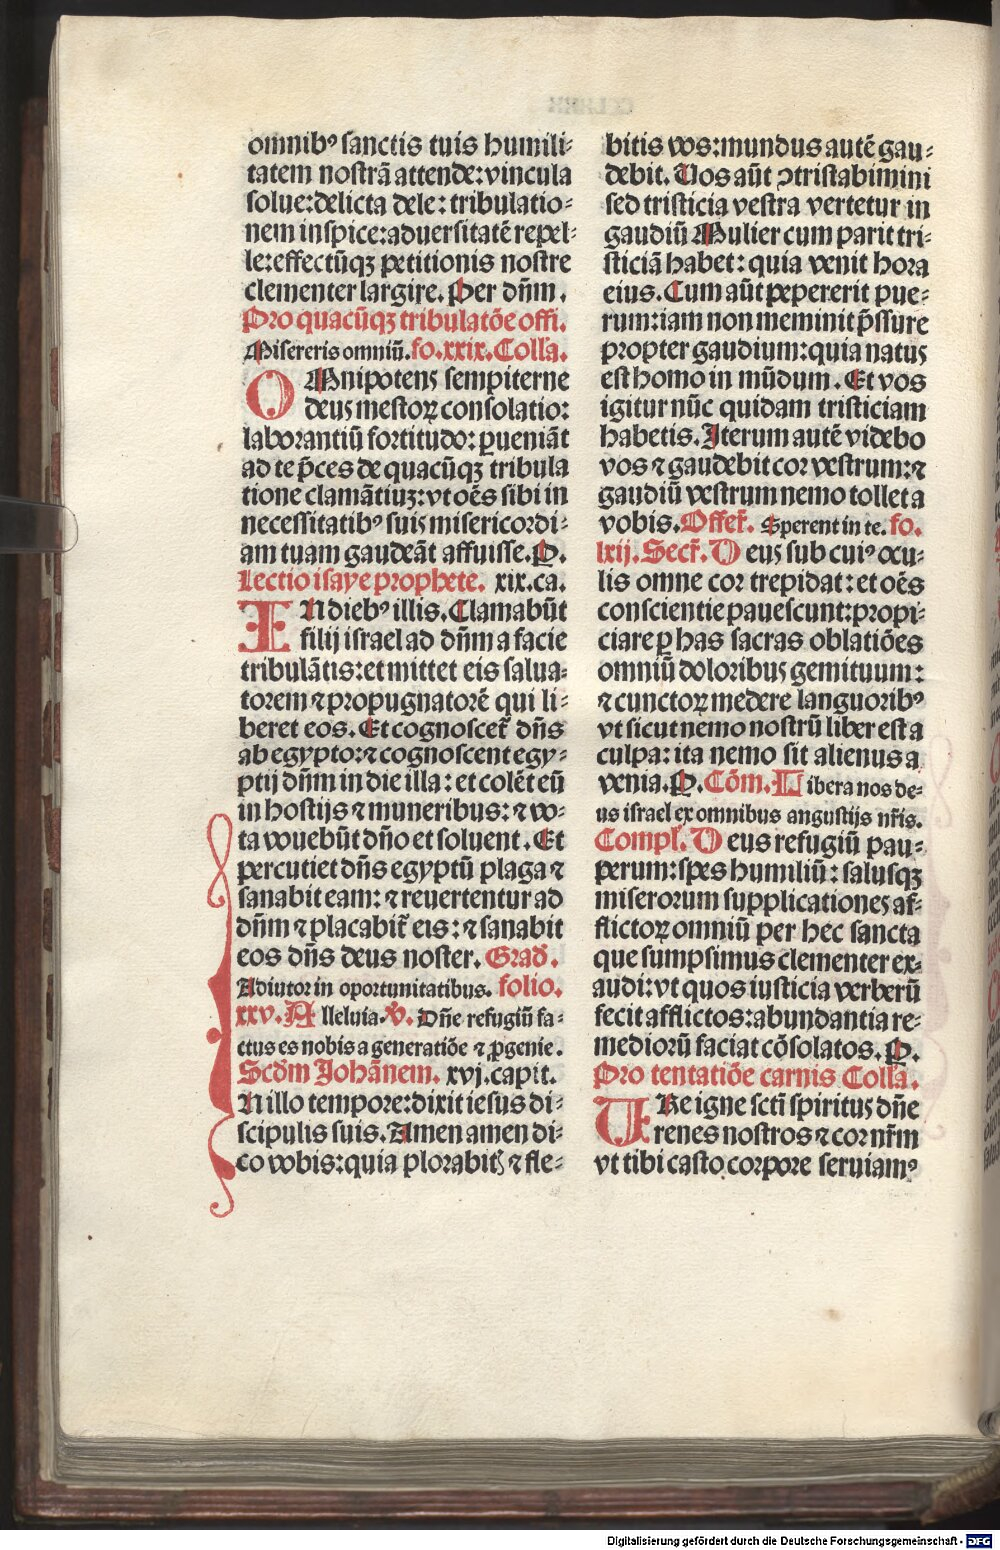 omnibꝰ sanctis tuis humili⸗
tatem nostrā attende: vincula
solue: delicta dele: tribulatio⸗
nem inspice: aduersitatē repel⸗
le: effectūqꝫ petitionis nostre
clementer largire. Per dn̄m.
Pro quacūqꝫ tribulatōe offi.
Misereris omniū. fo. xxix. Coll'a.
OMnipotens sempiterne
deus mestoꝝ consolatio:
laborantiū fortitudo: ꝑueniāt
ad te p̄ces de quacūqꝫ tribula
tione clamātiuꝫ: vt oēs sibi in
necessitatibꝰ suis misericordi⸗
am tuam gaudeāt affuisse. P.
Lectio isaye prophete. xix. ca.
IN diebꝰ illis. Clamabūt
filij israel ad dn̄m a facie
tribulātis: et mittet eis salua⸗
torem ⁊ propugnatorē qui li⸗
beret eos. Et cognoscet̄ dn̄s
ab egypto: ⁊ cognoscent egy⸗
ptij dn̄m in die illa: et colēt eū
in hostijs ⁊ muneribus: ⁊ vo⸗
ta vouebūt dn̄o et soluent. Et
percutiet dn̄s egyptū plaga ⁊
sanabit eam: ⁊ reuertentur ad
dn̄m ⁊ placabit̄ eis: ⁊ sanabit
eos dn̄s deus noster. Grad'.
Adiutor in oportunitatibus. folio.
xxv. Alleluia. V̄. Dn̄e refugiū fa⸗
ctus es nobis a generatiōe ⁊ ꝓgenie.
Scd̄m Johānem. xvj. capit.
IN illo tempore: dixit iesus di⸗
scipulis suis. Amen amen di⸗
co vobis: quia plorabitꝭ ⁊ fle⸗
bitis vos: mundus autē gau⸗
debit. Uos aūt ꝯtristabimini
sed tristicia vestra vertetur in
gaudiū Mulier cum parit tri⸗
sticiā habet: quia venit hora
eius. Cum aūt pepererit pue⸗
rum: iam non meminit p̄ssure
propter gaudium: quia natus
est homo in mūdum. Et vos
igitur nūc quidam tristiciam
habetis. Iterum autē videbo
vos ⁊ gaudebit cor vestrum: ⁊
gaudiū vestrum nemo tollet a
vobis. Offer̄. Sperent in te. fo.
lxij. Secr̄. Deus sub cuiꝰ ocu⸗
lis omne cor trepidat: et oēs
conscientie pauescunt: propi⸗
ciare ꝑ has sacras oblatiōes
omniū doloribus gemituum:
⁊ cunctoꝝ medere languoribꝰ
vt sicut nemo nostrū liber est a
culpa: ita nemo sit alienus a
venia. P. Cōm. Libera nos de⸗
us israel ex omnibus angustijs nr̄is.
Compl'. Deus refugiū pau⸗
perum: spes humiliū: salusqꝫ
miserorum supplicationes af⸗
flictoꝝ omniū per hec sancta
que sumpsimus clementer ex⸗
audi: vt quos iusticia verberū
fecit afflictos: abundantia re⸗
mediorū faciat cōsolatos. P.
Pro tentatiōe carnis Coll'a.
URe igne scti̅ spiritus dn̄e
renes nostros ⁊ cor nr̄m
vt tibi casto corpore seruiamꝰ
Digitalisierung gefördert durch die Deutsche Forschungsgemeinschaft - DFG